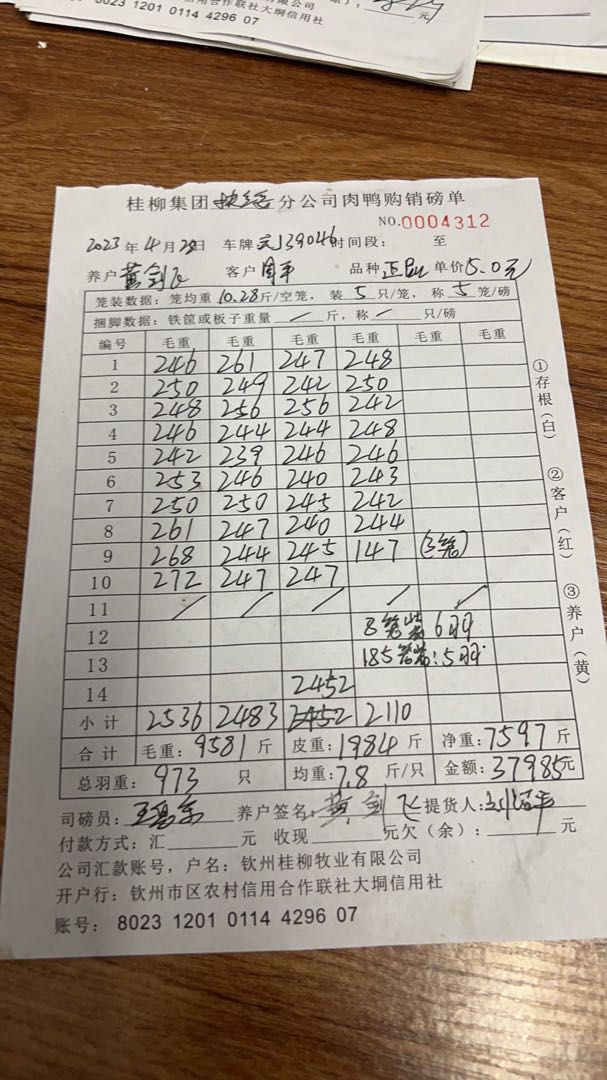 8023 1201 0114 4296 07
信用合作联社大垌信用社
元
桂柳集团 分公司肉鸭购销磅单
NO.0004312
2023年4月28日 车牌 J39046时间段: 至
养户黄剑飞 客户周平 品种 单价5.0元
笼装数据:笼均重10.28斤/空笼,装5只/笼,称5笼/磅
捆脚数据:铁筐或板子重量/斤,称/只/磅
编号 毛重 毛重 毛重 毛重 毛重 毛重
1 246 261 247 248
2 250 249 242 250
3 248 256 256 242
4 246 244 244 248
5 242 239 246 246
6 253 246 240 243
7 250 250 245 242
8 261 247 240 244
9 268 244 245 147 (3笼)
10 272 247 247
11 / / / / /
12 8笼装6羽
13 185笼装:5羽
14 2452
小计 2536 2483 2452 2110
合计 毛重:9581斤 皮重:1984斤 净重:7597斤
总羽重:973只 均重:7.8斤/只 金额:37985元
司磅员: 养户签名:黄剑飞 提货人:
付款方式:汇 元 收现 元欠(余): 元
公司汇款账号,户名:钦州桂柳牧业有限公司
开户行:钦州市区农村信用合作联社大垌信用社
账号:8023 1201 0114 4296 07
①存根(白)
②客户(红)
③养户(黄)